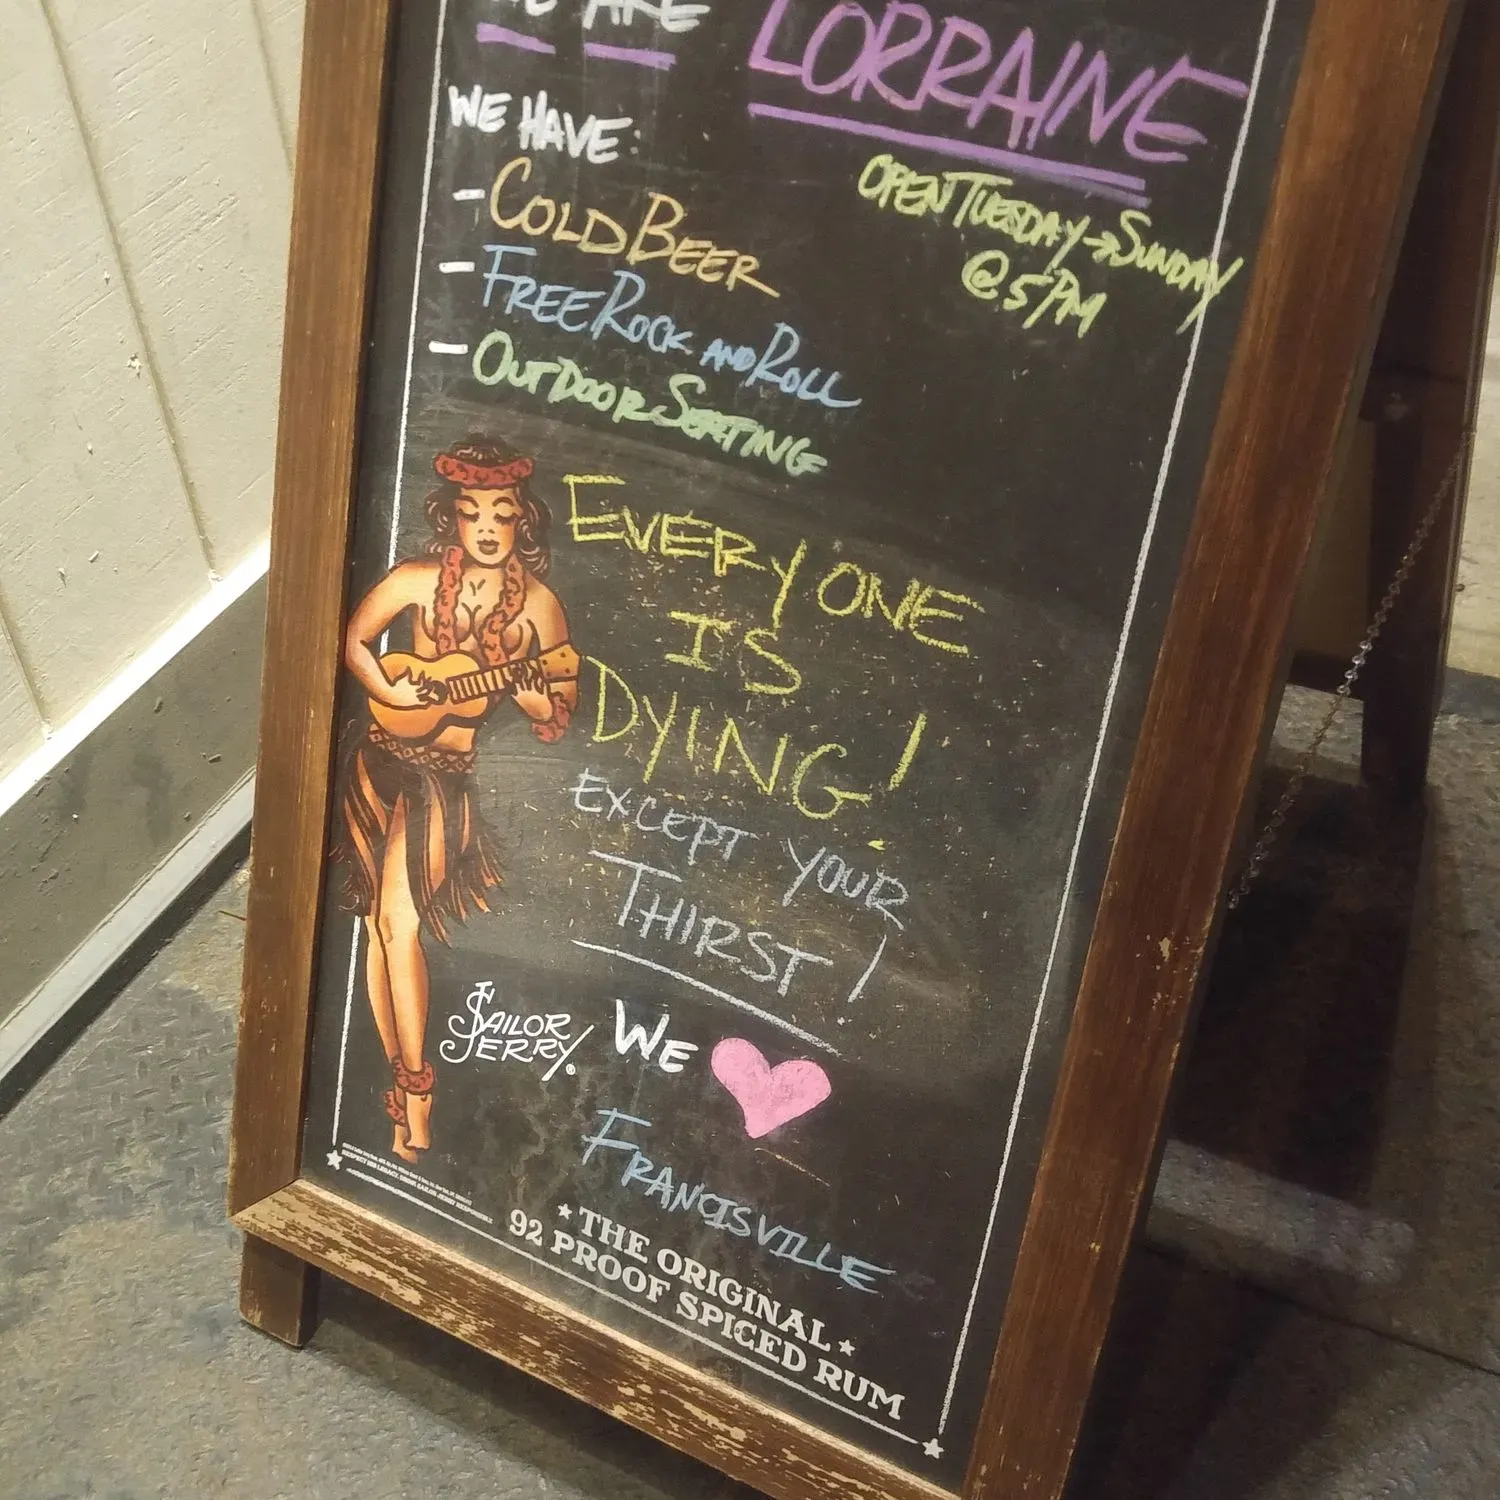 ARE LORRAINE
WE HAVE:
- COLD BEER
- FREE ROCK AND ROLL
- OUTDOOR SEATING
OPEN TUESDAY → SUNDAY
@ 5PM
EVERYONE
IS
DYING!
EXCEPT YOUR
THIRST!
SAILOR
JERRY®
WE ♥
FRANCISVILLE
★ THE ORIGINAL ★
92 PROOF SPICED RUM